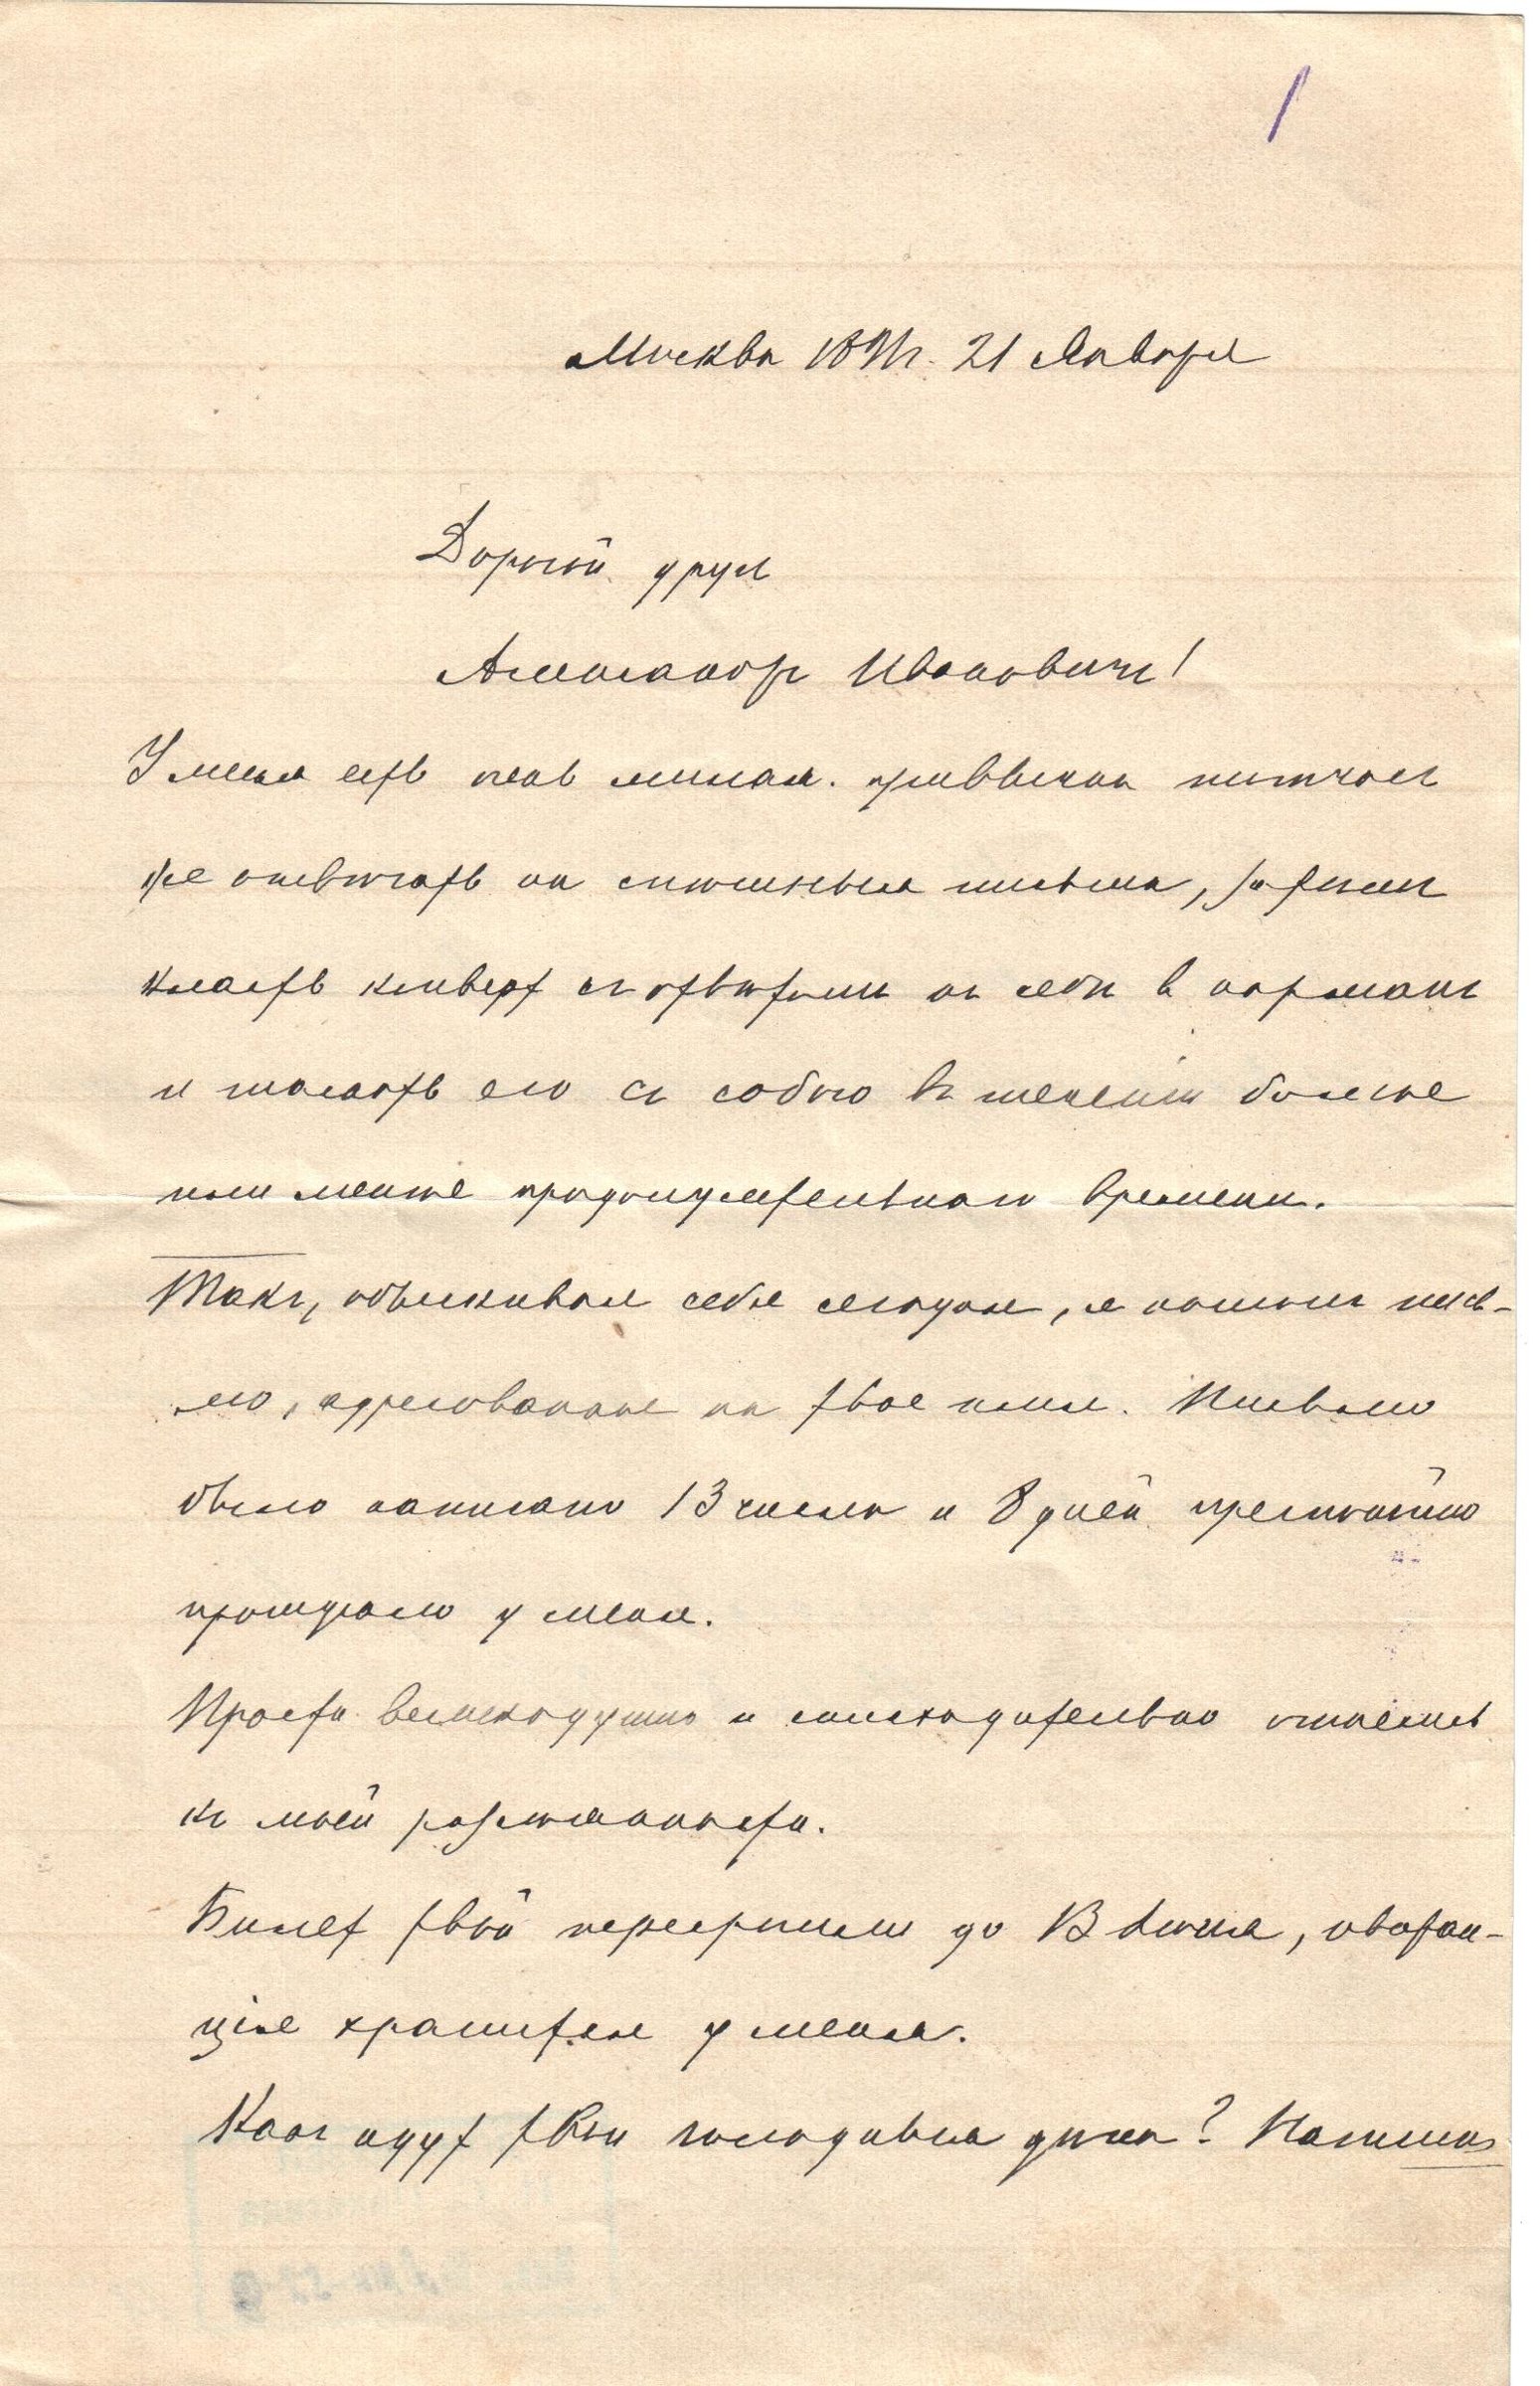 Москва 189 г. 21 Января
Дорогой другъ
Александръ Ивановичъ!
У меня есть одна милая привычка тотчасъ
же отвѣчать на спѣшныя письма, затѣмъ
класть конверт съ отвѣтомъ къ себѣ в карманъ
и таскать его съ собою въ теченіи болѣе
или менѣе продолжительнаго времени.
Такъ, обыскивая себя сегодня, я нашелъ пись-
мо, адресованное на твое имя. Письмо
было написано 13 числа и 8 дней преспокойно
пролежало у меня.
Прости великодушно и снисходительно отнесись
къ моей разсѣянности.
Билет твой пересрочили до Іюля, квитан-
ція хранится у меня.
Какъ идут твои дѣла? Напиши